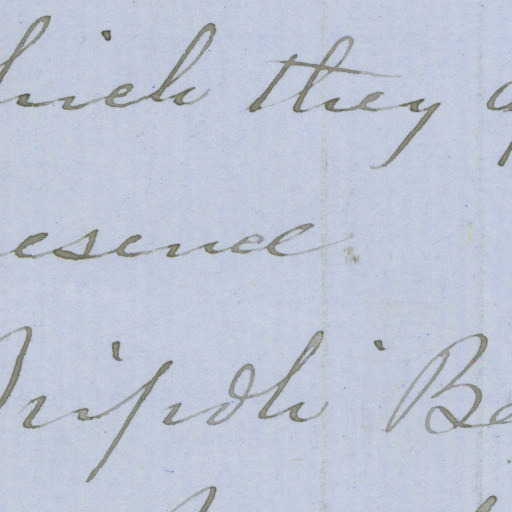 hich they
esence
Tripoli Ba